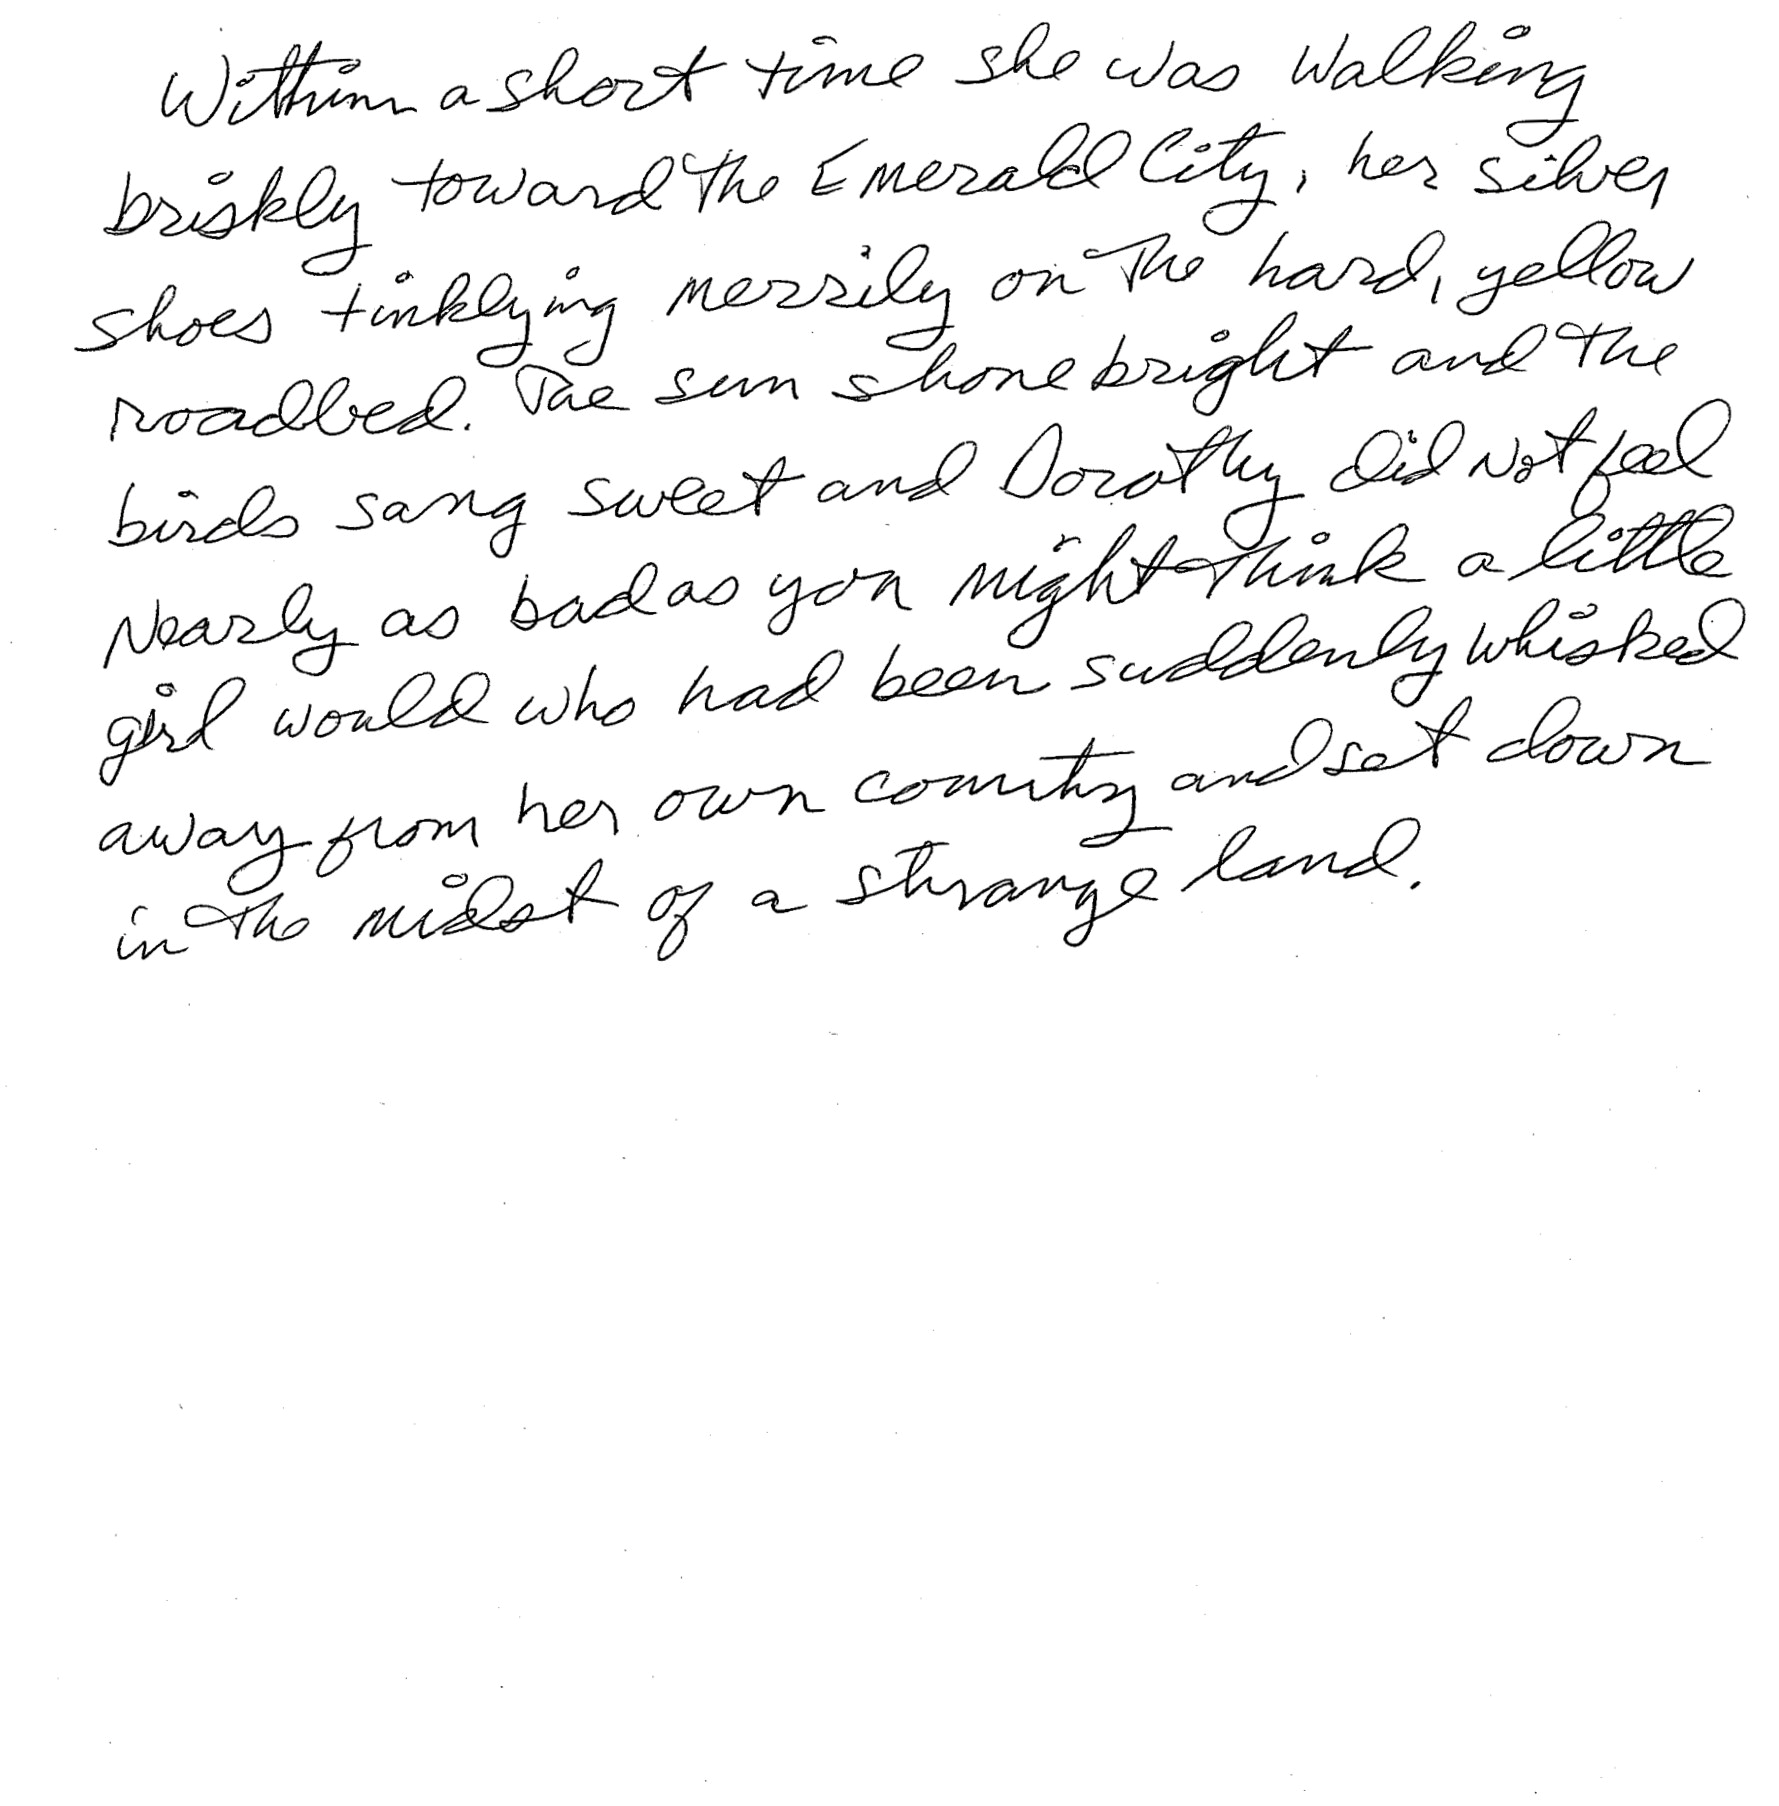 Within a short time she was walking
briskly toward the Emerald City, her silver
shoes tinklying merrily on the hard, yellow
roadbed. The sun shone bright and the
birds sang sweet and Dorothy did not feel
nearly as bad as you might think a little
girl would who had been suddenly whisked
away from her own country and set down
in the midst of a strange land.